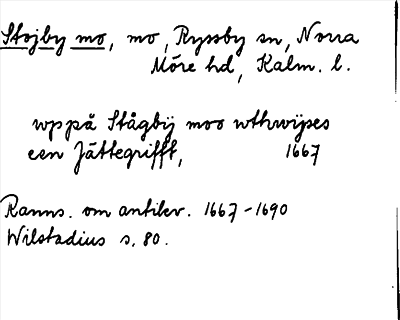 Stojby mo, mo, Ryssby sn, Norra
Möre hd, Kalm. l.
wppå Stågbÿ moo wthwijses
een Jättegrifft, 1667
Ranns. om antikv. 1667-1690
Wilstadius s. 80.